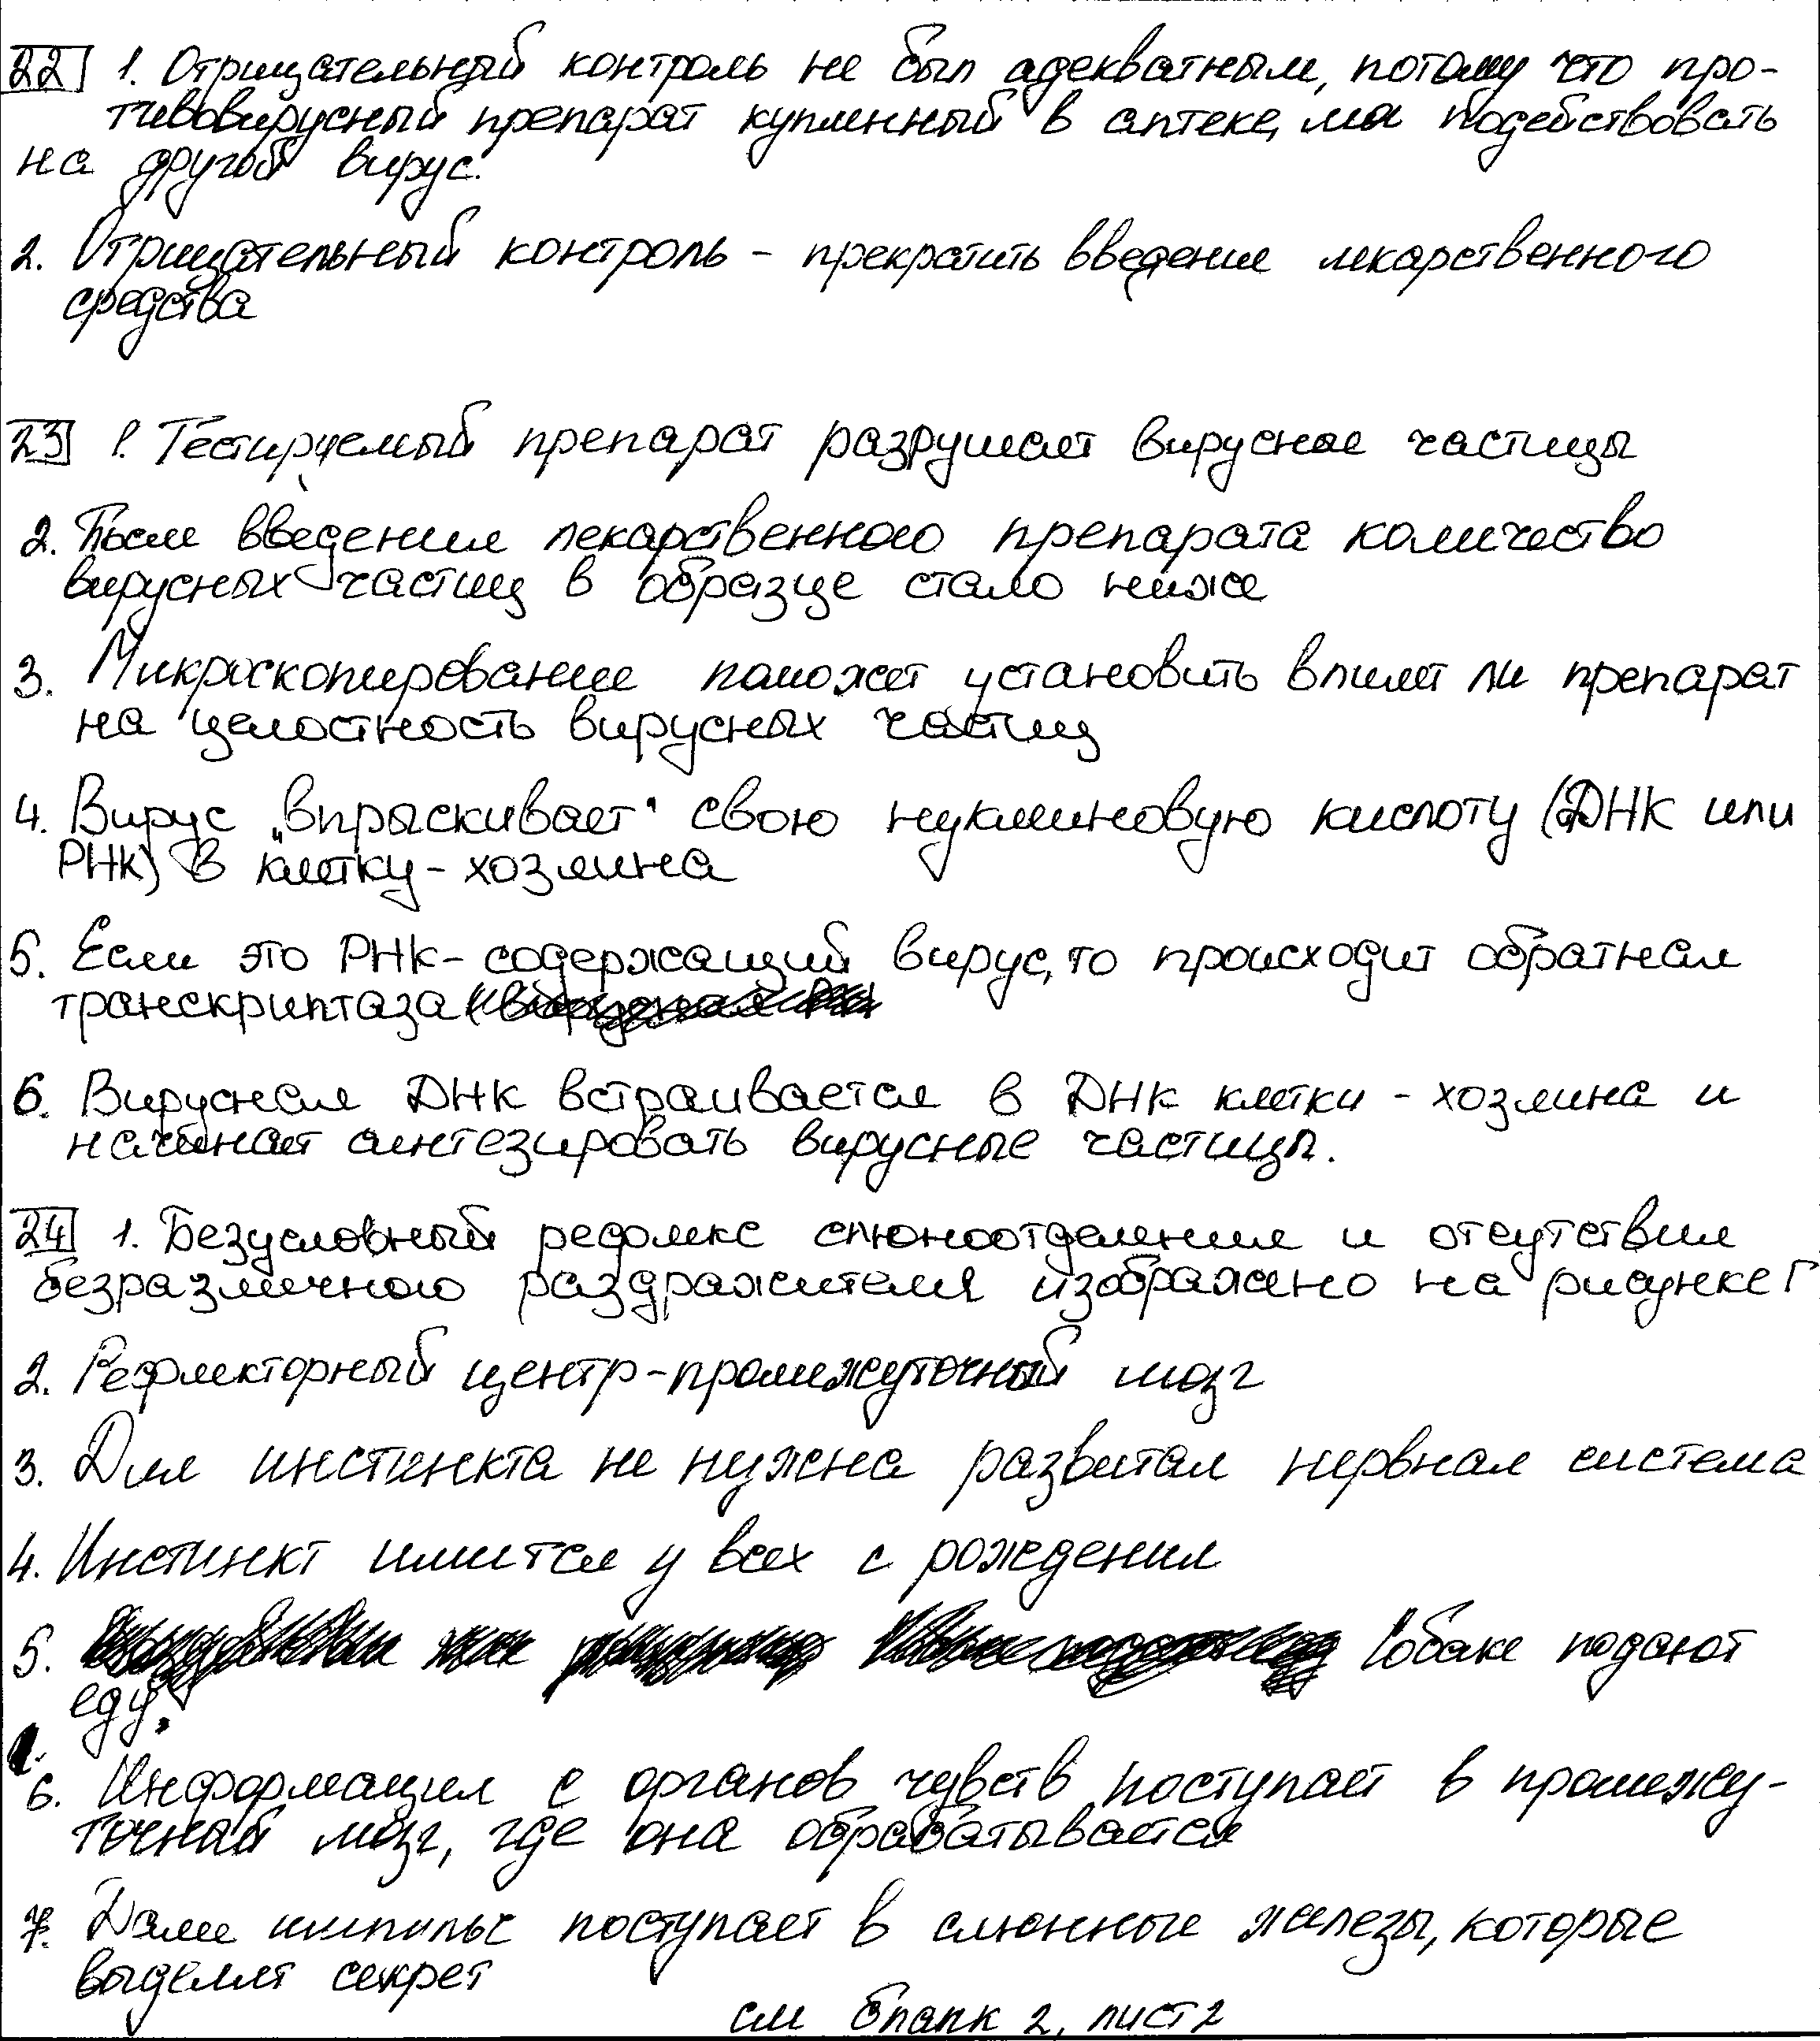 22 1. Отрицательный контроль не был адекватным, потому что про-
тивовирусный препарат купленный в аптеке, мог подействовать
на другой вирус.
2. Отрицательный контроль - прекратить введение лекарственного
средства
23 1. Тестируемый препарат разрушает вирусные частицы
2. После введения лекарственного препарата количество
вирусных частиц в образце стало ниже
3. Микроскопирование поможет установить влияет ли препарат
на целостность вирусных частиц
4. Вирус „впрыскивает" свою нуклеиновую кислоту (ДНК или
РНК) в клетку-хозяина
5. Если это РНК-содержащий вирус, то происходит обратная
транскриптаза
6. Вирусная ДНК встраивается в ДНК клетки-хозяина и
начинает синтезировать вирусные частицы.
24 1. Безусловный рефлекс слюноотделения и отсутствия
безразличного раздражителя изображено на рисунке Г
2. Рефлекторный центр-промежуточный мозг
3. Для инстинкта не нужна развитая нервная система
4. Инстинкт имеется у всех с рождения
5. Собаке подают
еду.
6. Информация с органов чувств поступает в промежу-
точный мозг, где она обрабатывается
7. Далее импульс поступает в слюнные железы, которые
выделят секрет
см бланк 2, лист 2